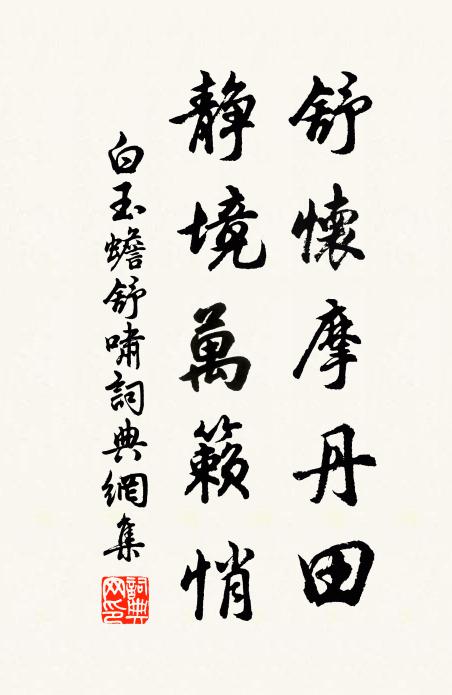 舒懷摩丹田
静境萬籟悄
白玉蟾舒嘯詞典網集
詞典网印